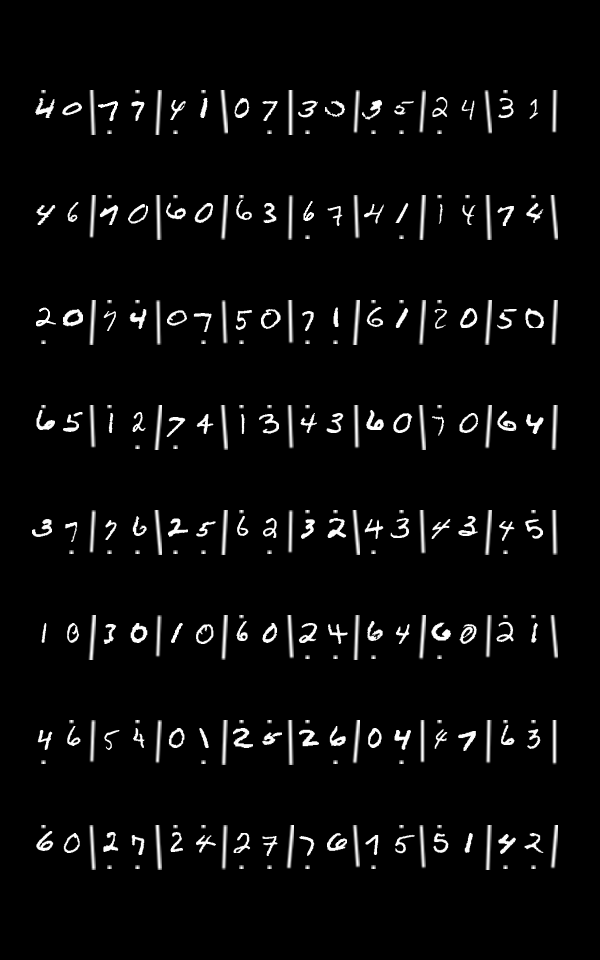 40|77|41|07|30|35|24|31|
46|70|60|63|67|41|14|74|
20|74|07|50|71|61|20|50|
65|12|74|13|43|60|70|64|
37|76|25|62|32|43|43|45|
10|30|10|60|24|64|60|21|
46|54|01|25|26|04|47|63|
60|27|24|27|76|15|51|42|